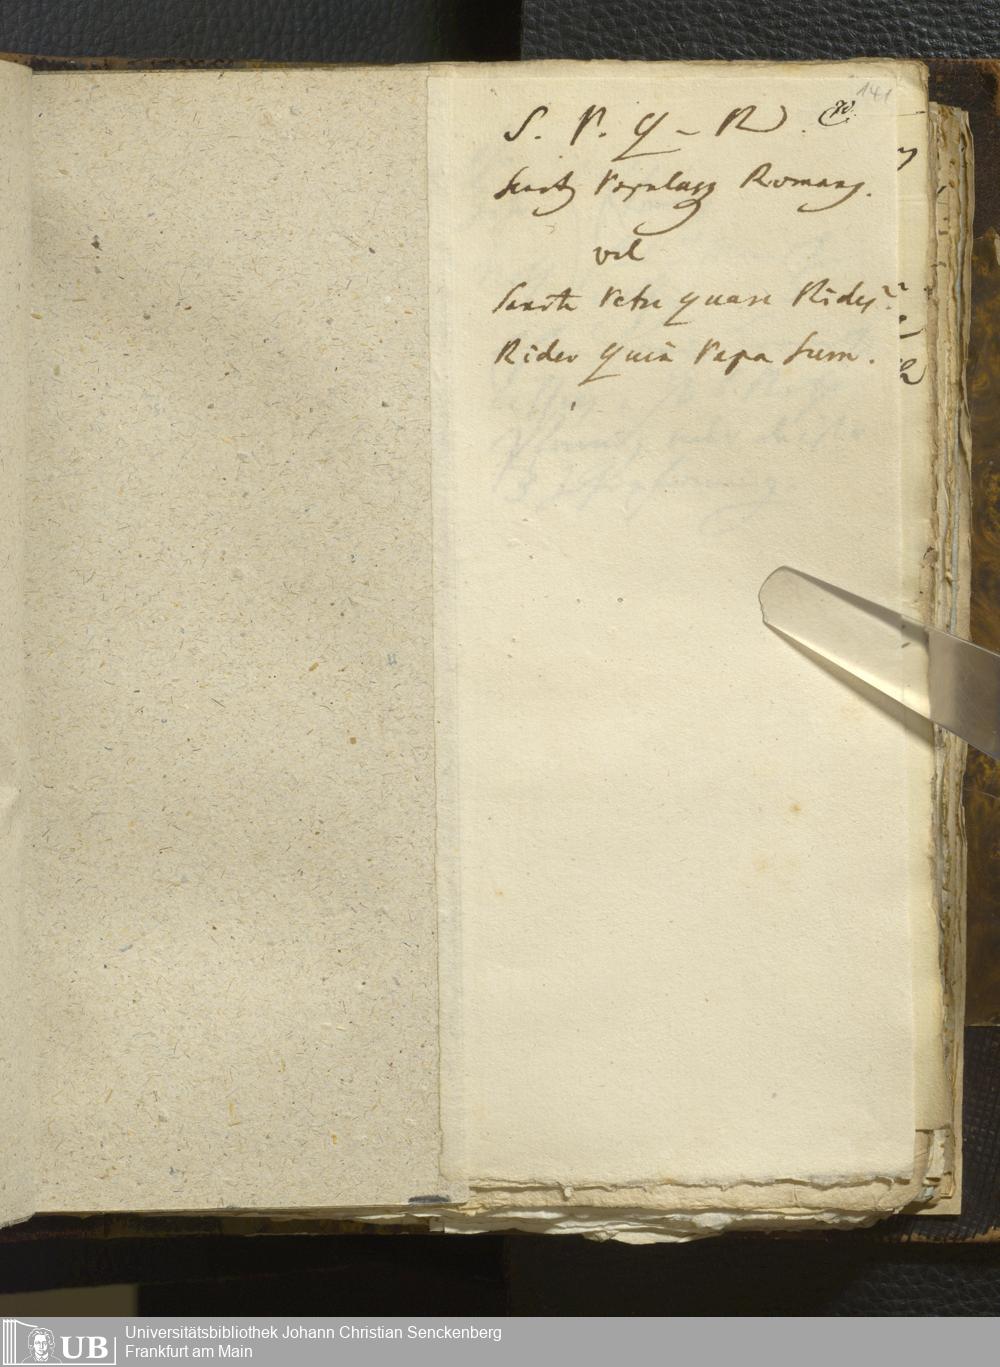 141
S. P. Q - R.
Senatus Populusq Romanus.
vel
Sancte Petre quare Rides?
Rideo Quia Papa Sum.
UB
Universitätsbibliothek Johann Christian Senckenberg
Frankfurt am Main